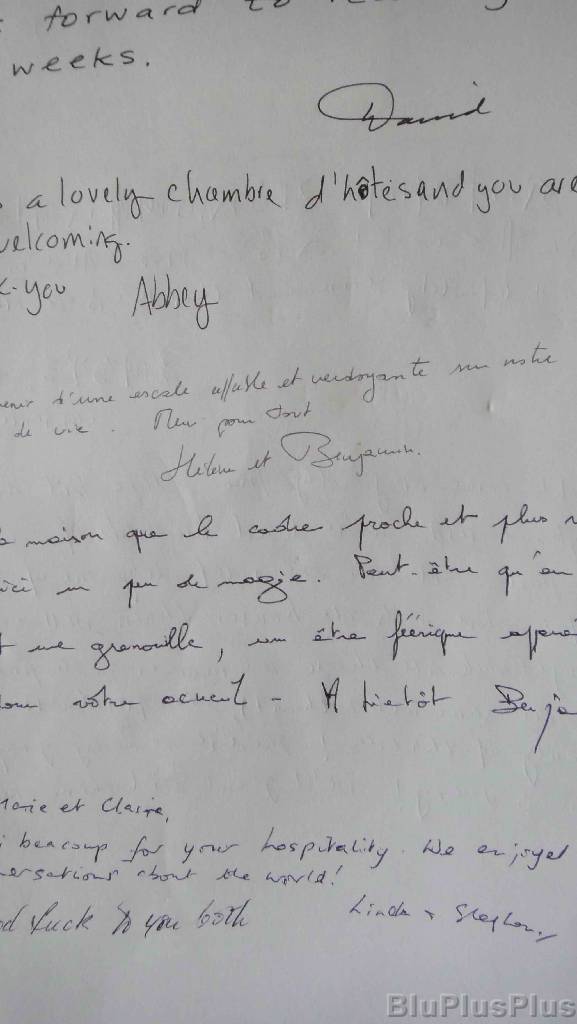 forward to
weeks.
David
a lovely chambre d'hôtes and you are
welcoming.
you Abbey
d'une escale affable et verdoyante sur notre
de vie. Merci pour tout
Hélène et Benjamin.
maison que le cadre proche et plus
ici un peu de magie. Peut-être qu'en
une grenouille, un être féérique
votre accueil - A bientôt Benja
Marie et Claire,
beacoup for your hospitality. We enjoyed
ersations about the world!
luck to you both Linda & Stephen
BluPlusPlus